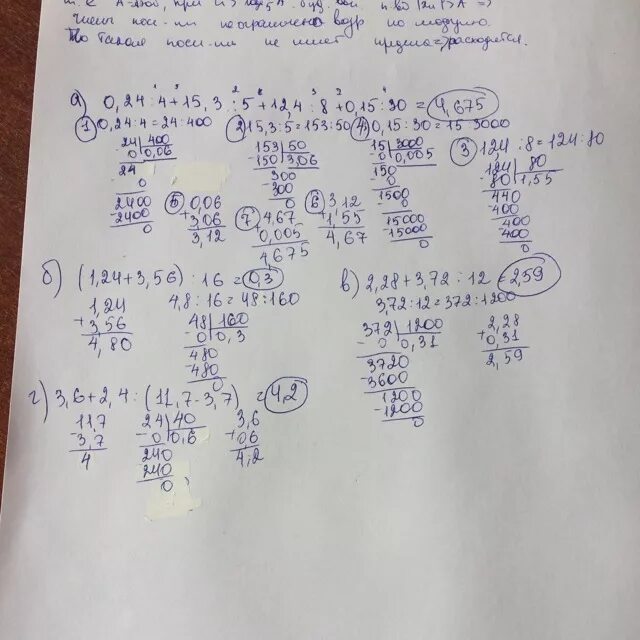 членов посл-ти неограничено возр по модулю
То такая посл-ть не имеет предела => расходится.
а) 0,24 : 4 + 15,3 : 5 + 12,4 : 8 + 0,15 : 30 = 4,675
① 0,24:4 = 24:400 ② 15,3:5 = 153:50 ④ 0,15:30 = 15:3000 ③ 12,4 : 8 = 124 : 80
24 400 153 50 15 3000 124 80
0 0,06 -150 3,06 0 0,005 -80 1,55
24 300 150 440
- 0 - 300 - 0 400
2400 0 1500 400
- 2400 - 0 - 400
0 15000 0
- 15000
0
⑤ 0,06 ⑦ 4,67 ⑥ 3,12
+ 3,06 + 0,005 + 1,55
3,12 4,675 4,67
б) (1,24 + 3,56) : 16 = 0,3
1,24 4,8 : 16 = 48 : 160
+ 3,56 48 160
4,80 - 0 0,3
480
- 480
0
в) 2,28 + 3,72 : 12 = 2,59
3,72 : 12 = 372 : 1200
372 1200 2,28
- 0 0,31 + 0,31
3720 2,59
- 3600
1200
- 1200
0
г) 3,6 + 2,4 : (11,7 - 3,7) = 4,2
11,7 24 40 3,6
- 3,7 - 0 0,6 + 06
4 240 4,2
240
0